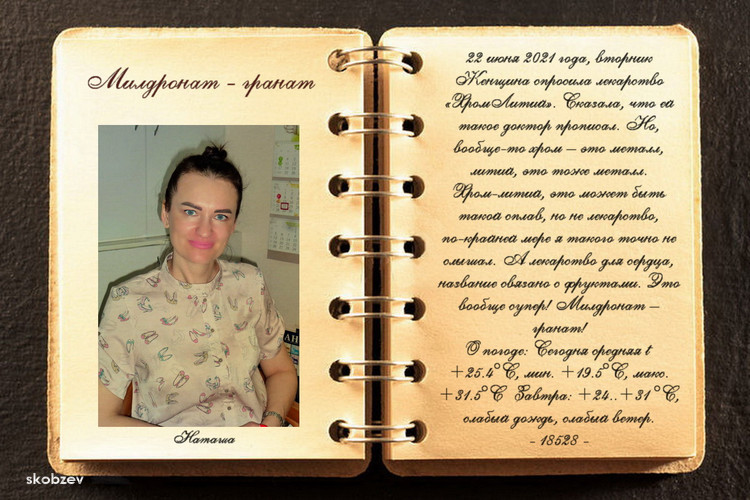 Милдронат - гранат
Наташа
22 июня 2021 года, вторник
Женщина спросила лекарство
«ХромЛитий». Сказала, что ей
такое доктор прописал. Но,
вообще-то хром – это металл,
литий, это тоже металл.
Хром-литий, это может быть
такой сплав, но не лекарство,
по-крайней мере я такого точно не
слышал. А лекарство для сердца,
название связано с фруктами. Это
вообще супер! Милдронат –
гранат!
О погоде: Сегодня средняя t
+25.4°C, мин. +19.5°C, макс.
+31.5°C Завтра: +24..+31°C,
слабый дождь, слабый ветер.
- 18528 -
skobzev